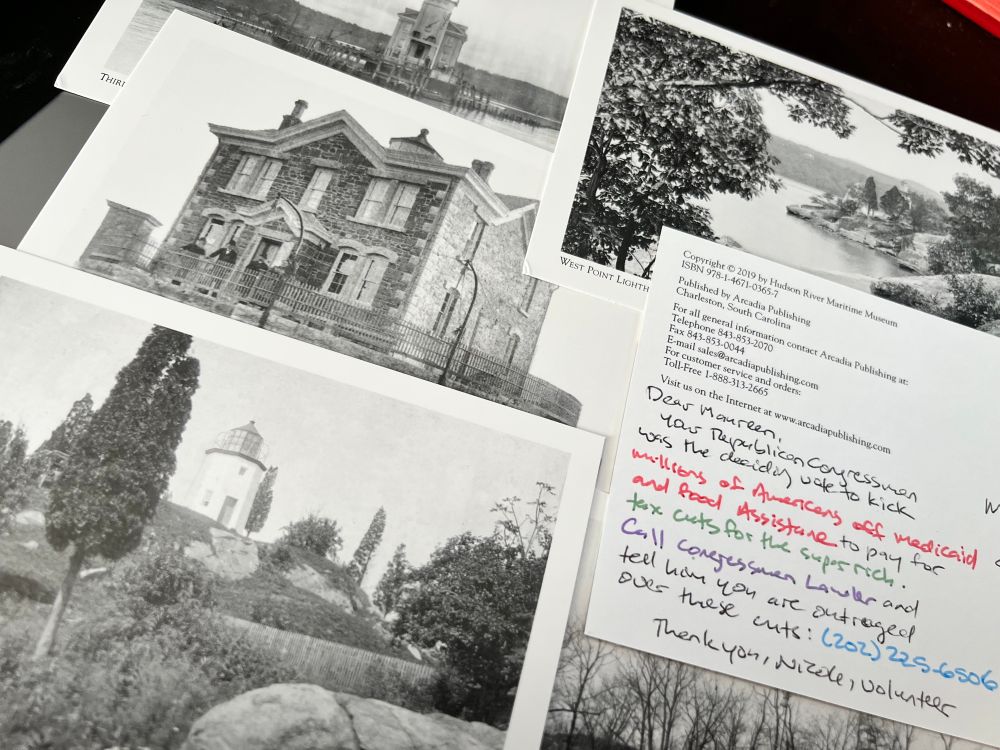 THIRD
WEST POINT LIGHTH
Copyright © 2019 by Hudson River Maritime Museum
ISBN 978-1-4671-0365-7
Published by Arcadia Publishing
Charleston, South Carolina
For all general information contact Arcadia Publishing at:
Telephone 843-853-2070
Fax 843-853-0044
E-mail sales@arcadiapublishing.com
For customer service and orders:
Toll-Free 1-888-313-2665
Visit us on the Internet at www.arcadiapublishing.com
Dear Maureen,
Your Republican Congressman
was the deciding vote to kick
millions of Americans off medicaid
and food Assistane to pay for
tax cuts for the super rich.
Call Congressman Lawler and
tell him you are outraged
over these cuts: (202) 225-6506
Thank you, Nicole, volunteer